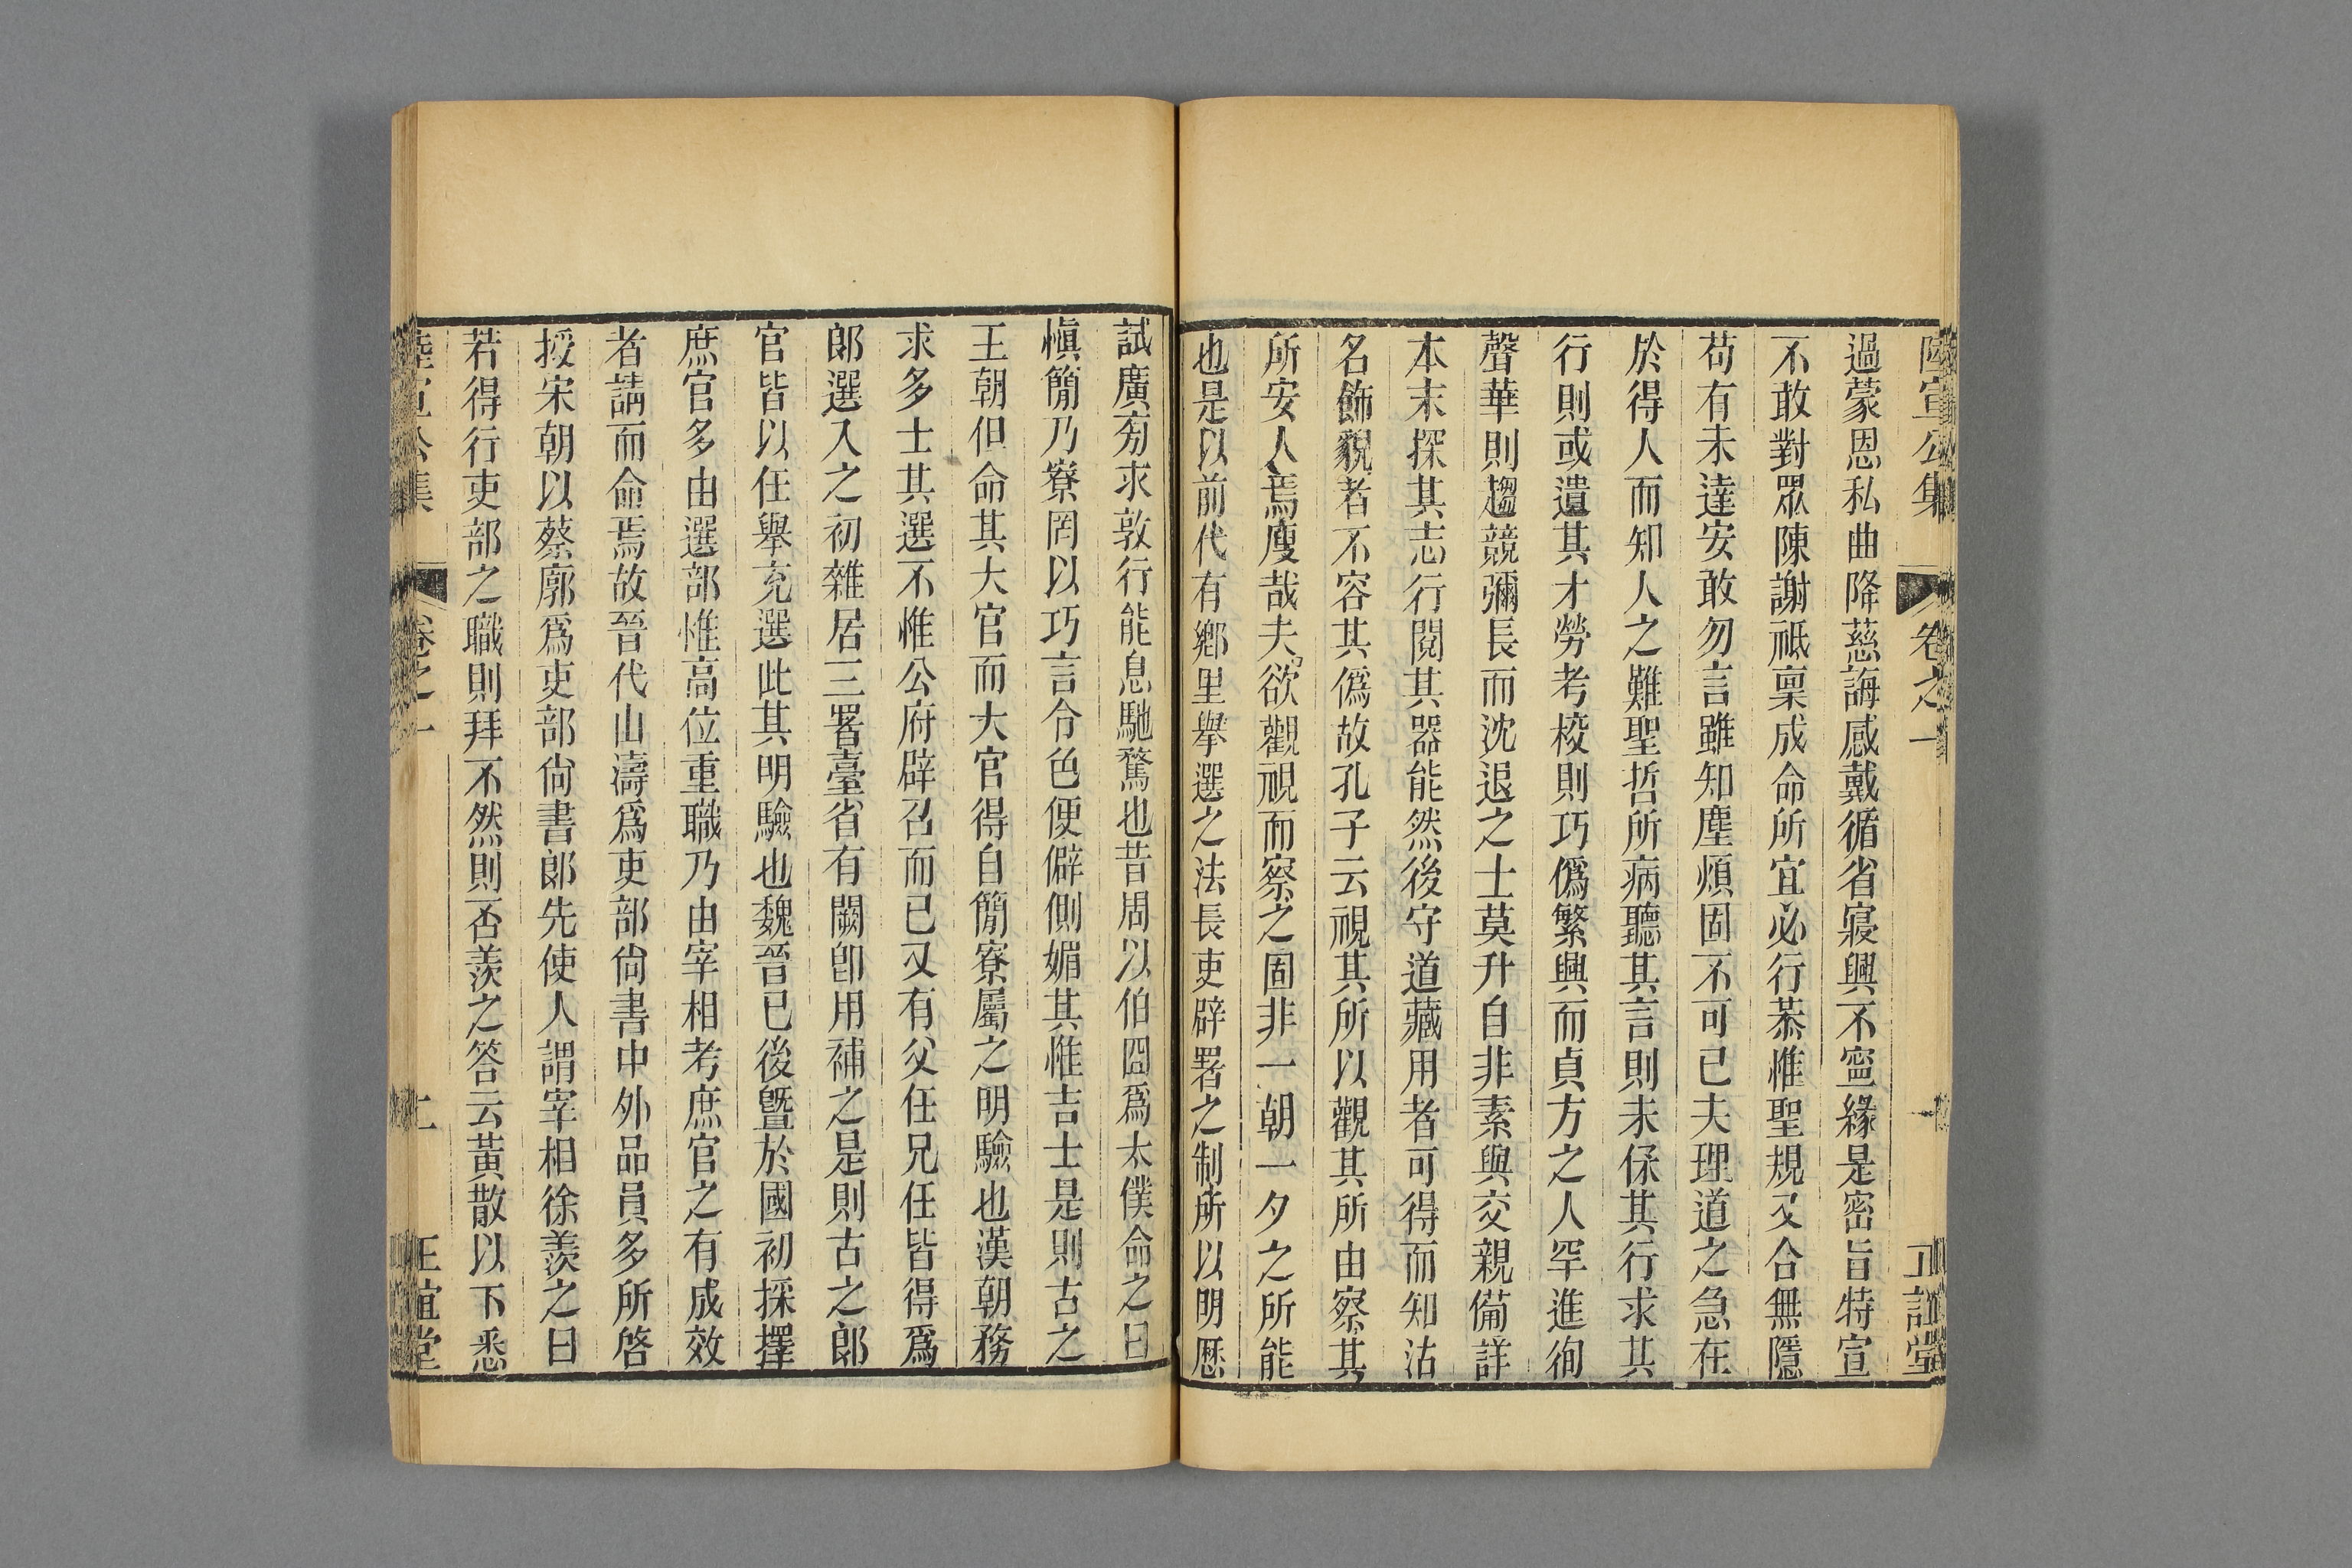 陸宣公集 卷之一
過蒙恩私曲降慈誨感戴循省寢興不寍緣是密旨特宣
不敢對眾陳謝祗稟成命所宜必行恭惟聖規又合無隱
苟有未達安敢勿言雖知塵煩固不可已夫理道之急在
於得人而知人之難聖哲所病聽其言則未保其行求其
行則或遺其才勞考校則巧僞繁興而貞方之人罕進徇
聲華則趨競彌長而沈退之士莫升自非素與交親備詳
本末探其志行閱其器能然後守道藏用者可得而知沽
名飾貌者不容其僞故孔子云視其所以觀其所由察其
所安人焉廋哉夫欲觀視而察之固非一朝一夕之所能
也是以前代有鄉里舉選之法長吏辟署之制所以明歷
試廣旁求敦行能息馳騖也昔周以伯冏爲太僕命之曰
愼簡乃寮罔以巧言令色便僻側媚其惟吉士是則古之
王朝但命其大官而大官得自簡寮屬之明驗也漢朝務
求多士其選不惟公府辟召而已又有父任兄任皆得爲
郎選入之初雜居三署臺省有闕卽用補之是則古之郎
官皆以任舉充選此其明驗也魏晉已後曁於國初採擇
庶官多由選部惟高位重職乃由宰相考庶官之有成效
者請而命焉故晉代山濤爲吏部尙書中外品員多所啓
授宋朝以蔡廓爲吏部尙書郎先使人謂宰相徐羨之曰
若得行吏部之職則拜不然則否羨之答云黃散以下悉
陸宣公集 卷之一